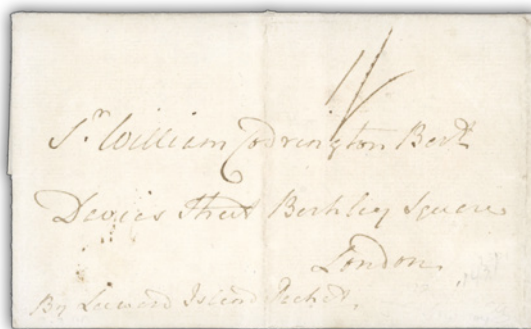 1/
Sr. William Codrington Bart
Davies Street Berkley Square
London
By Leeward Island Packet.